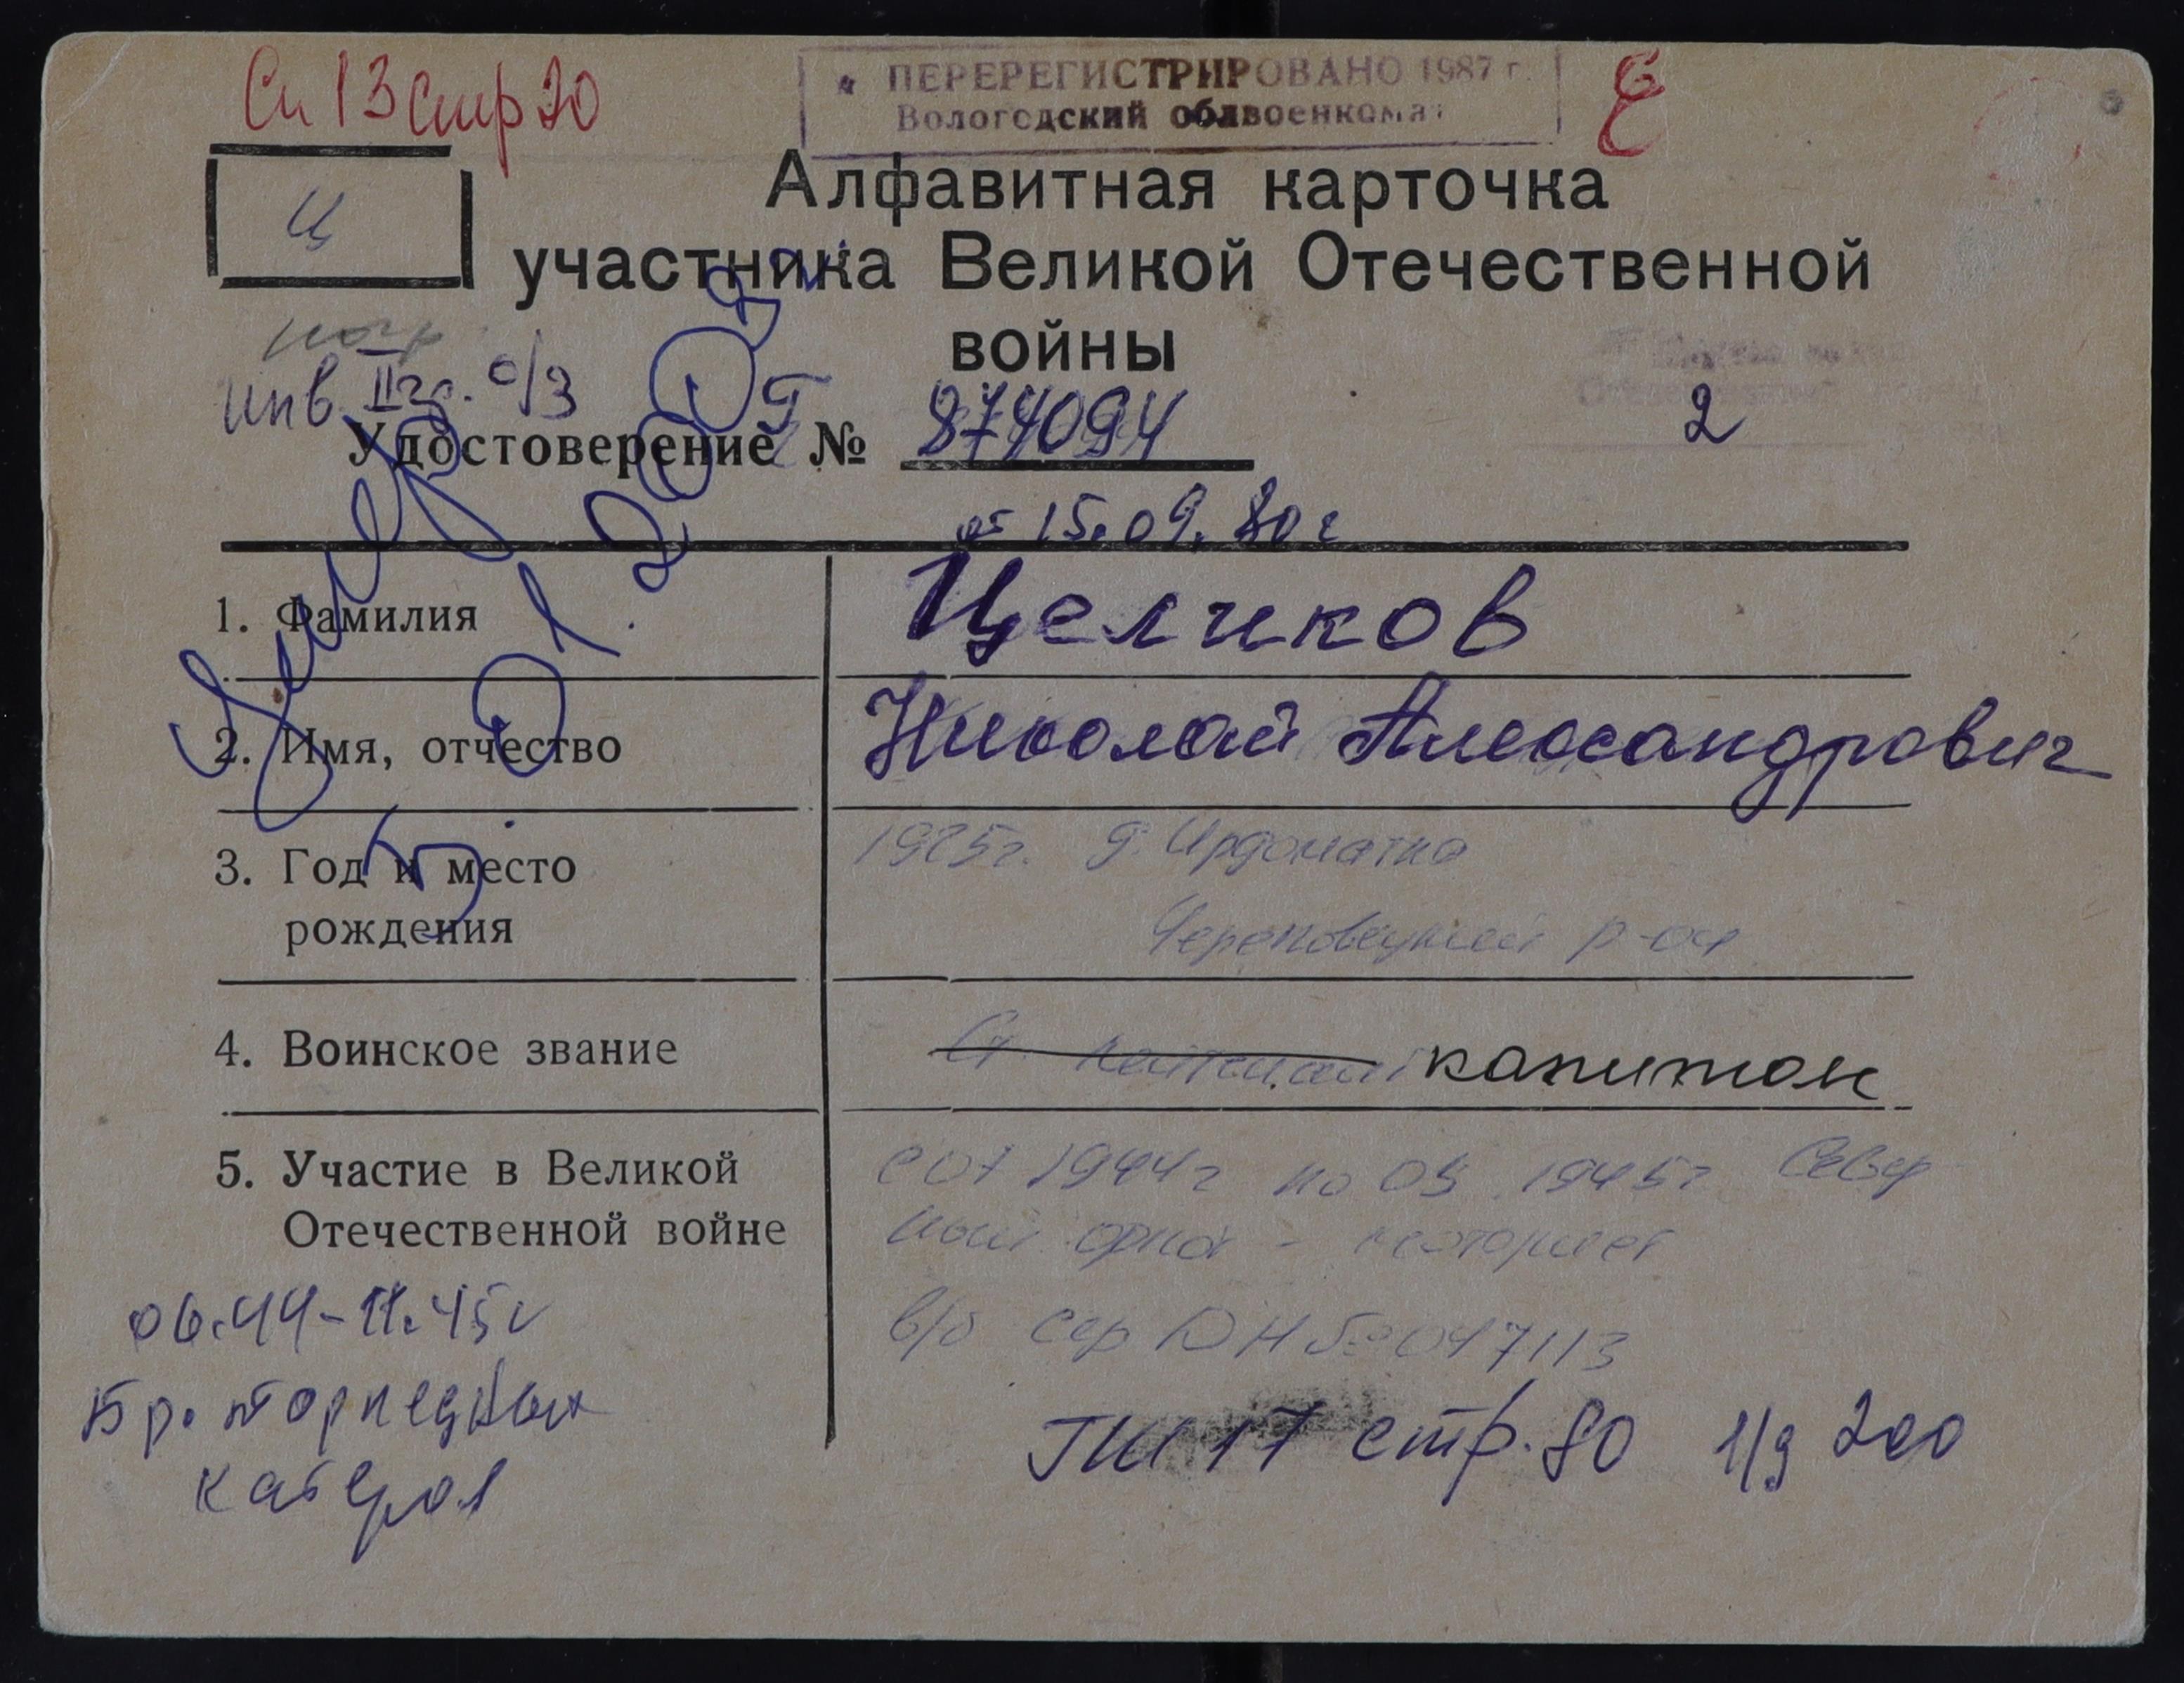 Сп 13 стр 20
ПЕРЕРЕГИСТРИРОВАНО 1987 г.
Вологодский облвоенкомат
Ц
Алфавитная карточка
участника Великой Отечественной
войны
инв. II гр. о/з
Удостоверение № 874094
2
от 15.09.80 г
Умер
5.01.2002 г.
1. Фамилия
Целиков
2. Имя, отчество
Николай Александрович
3. Год и место
рождения
1925г. д. Ирдоматка
Череповецкий р-он
4. Воинское звание
Ст. лейтенант капитан
5. Участие в Великой
Отечественной войне
с 07 1944г по 05 1945г Север
ный флот -
в/б сер ДН № 047113
06.44-11.45г
Бр. торпедных
катеров
ГШ 17 стр. 80 1/9 200